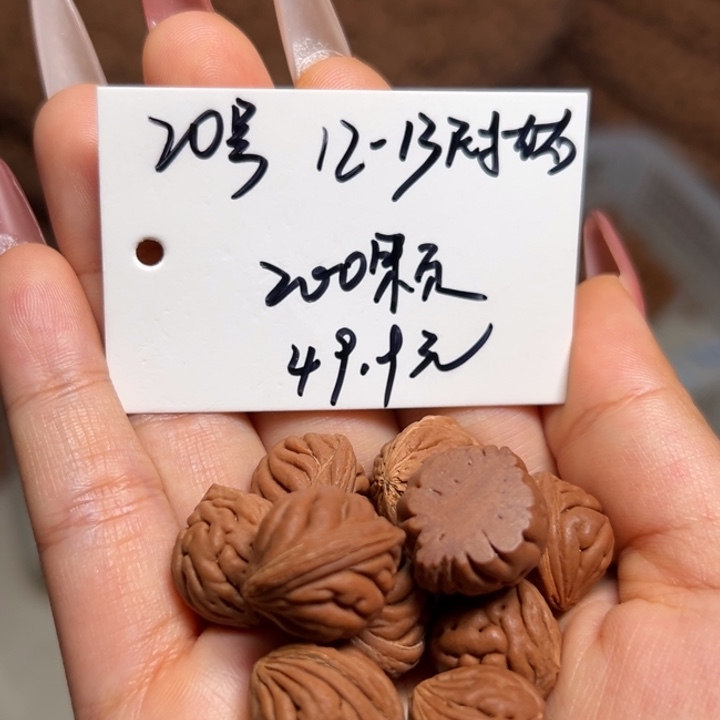 20号 12-13
200颗
49.9元